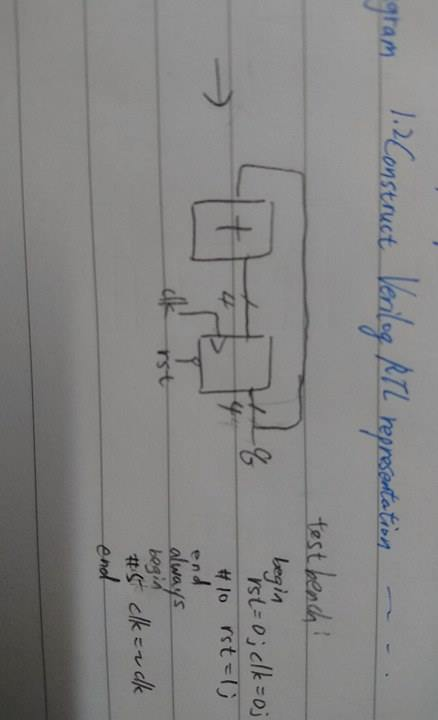 gram 1.2 Construct Verilog RTL representation ~ - .
+
4
4
clk
rst
test bench:
begin
rst=0; clk=0;
#10 rst=1;
end
always
begin
#5 clk=~clk
end